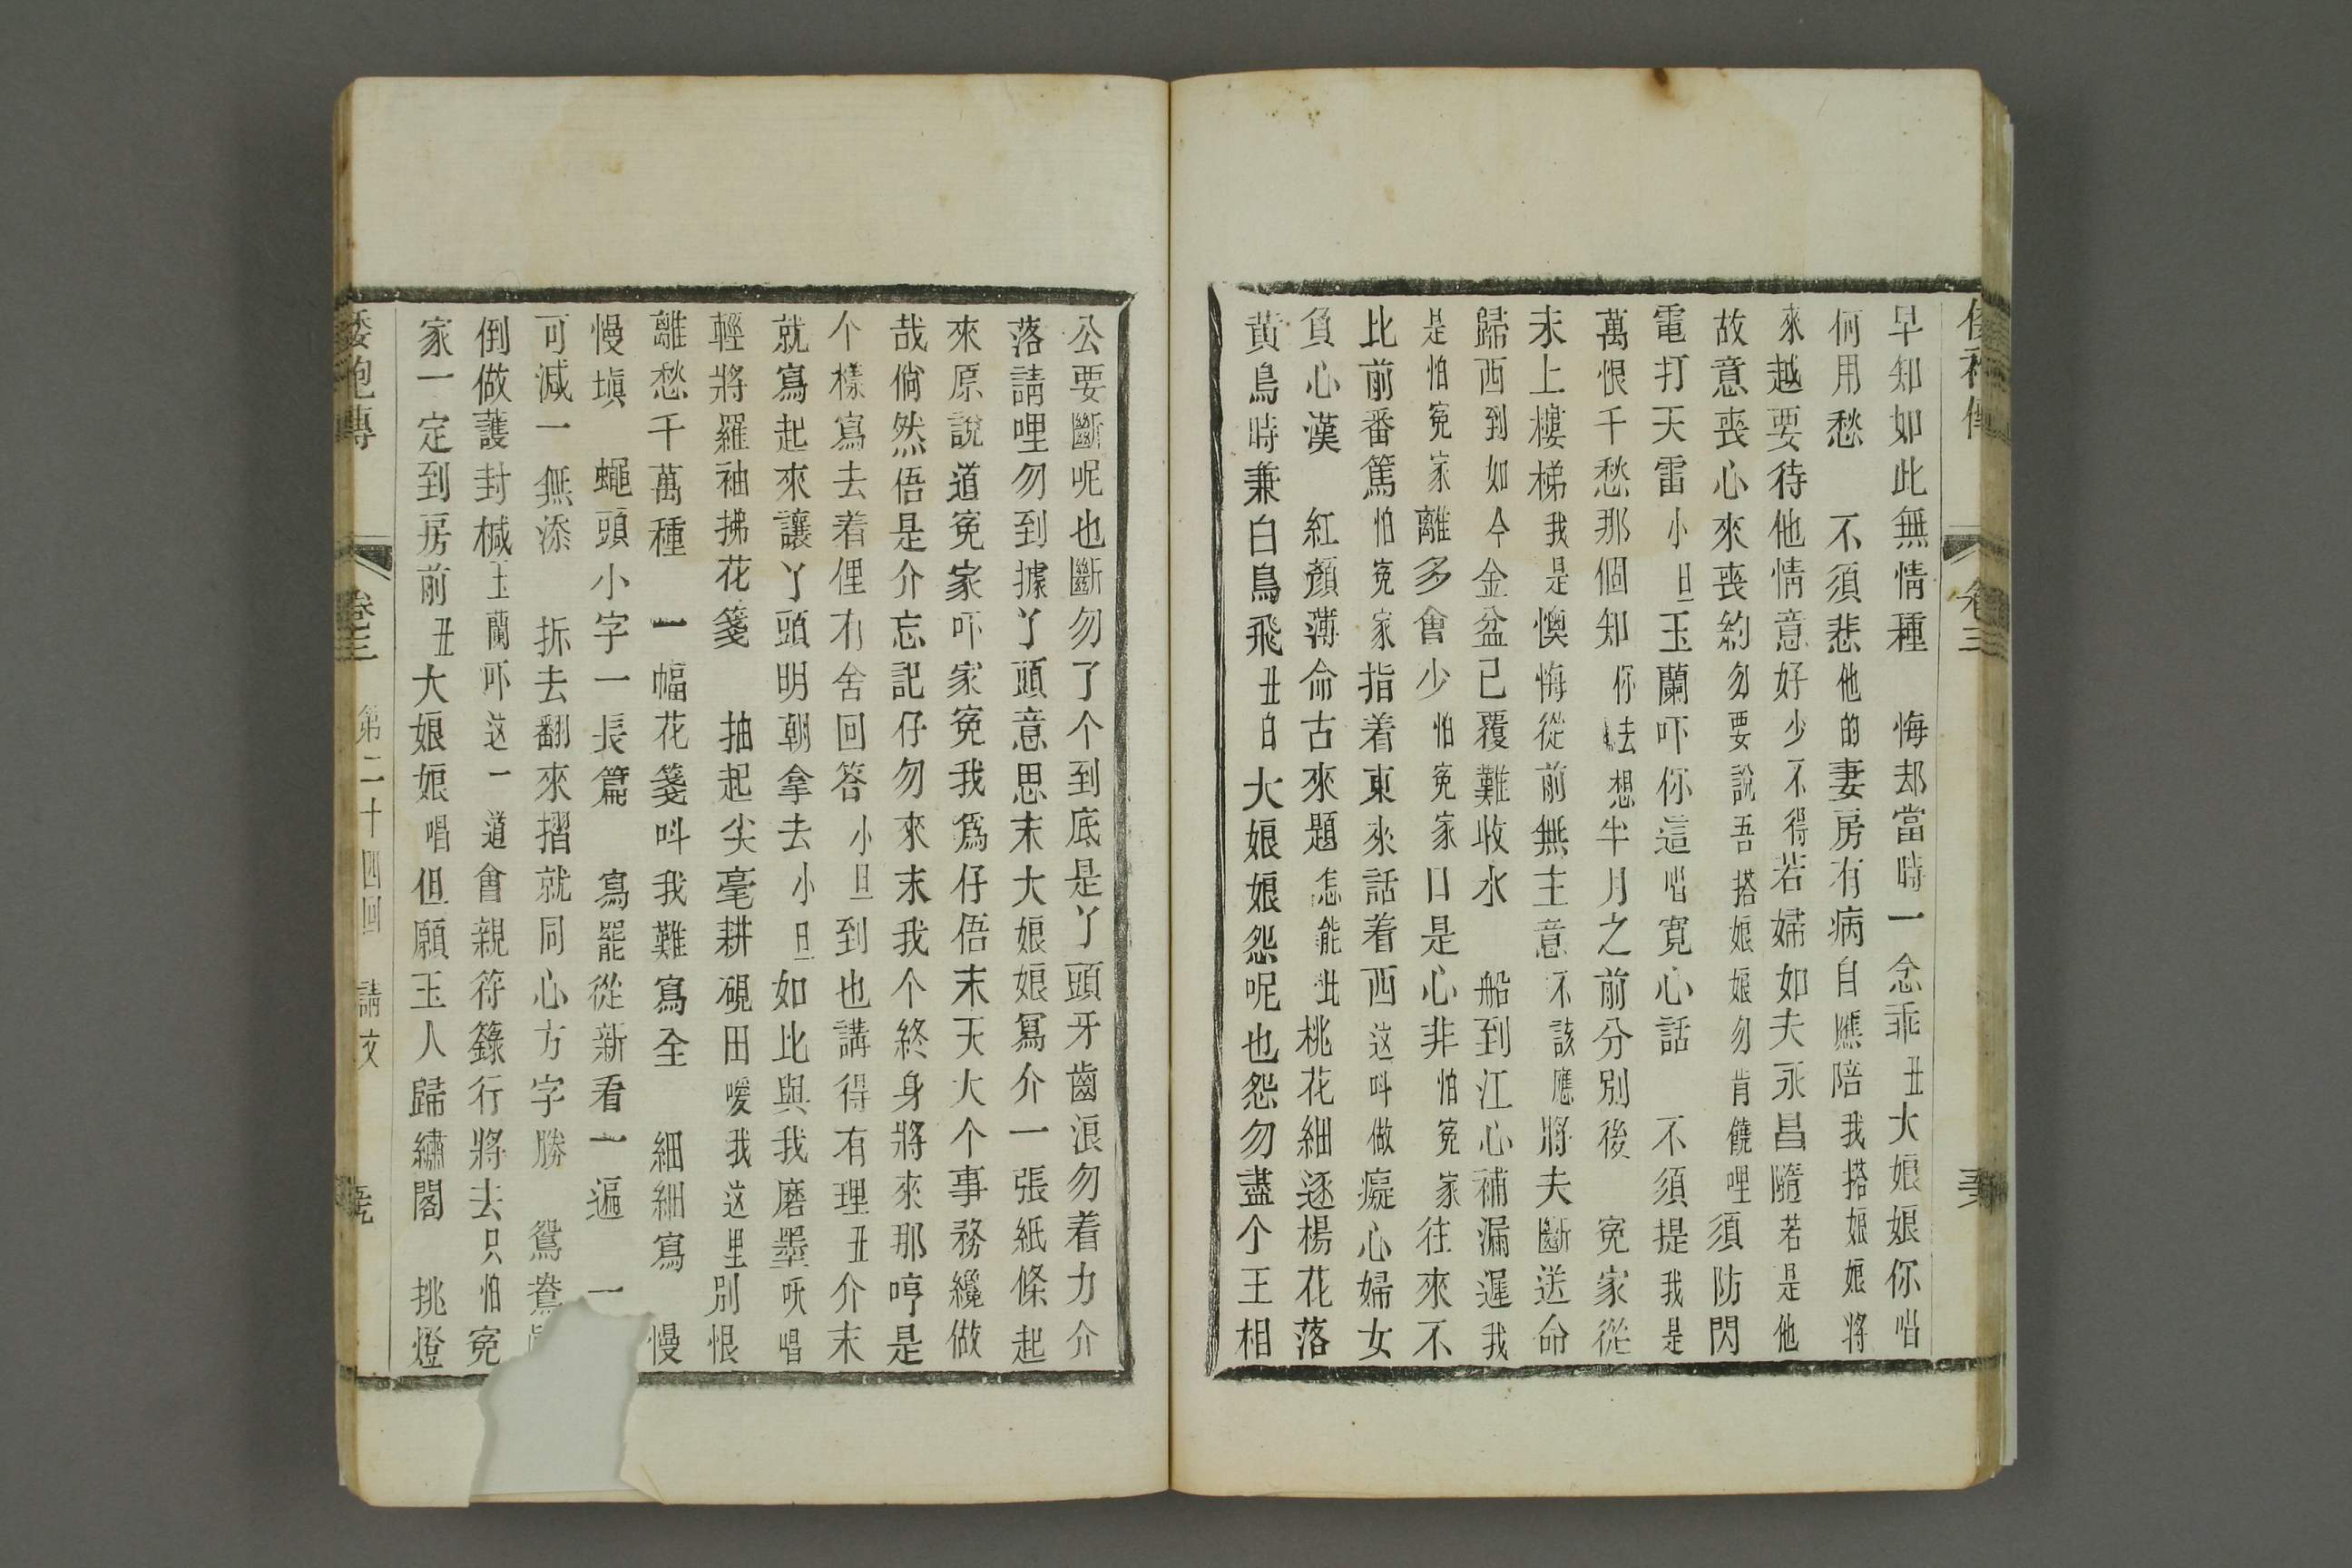 卷三
早知如此無情種　悔却當時一念乖丑大娘娘你唱
何用愁　不須悲他的妻房有病自應陪我搭娘娘將
來越要待他情意好少不得若婦如夫永昌隨若是他
故意喪心來喪約勿要說吾搭娘娘勿肯饒哩須防閃
電打天雷小旦玉蘭吓你這唱寬心話　不須提我是
萬恨千愁那個知你去想半月之前分別後　冤家從
未上樓梯我是懊悔從前無主意不該應將夫斷送命
歸西到如今金盆已覆難收水　船到江心補漏遲我
是怕冤家離多會少怕冤家口是心非怕冤家往來不
比前番篤怕冤家指着東來話着西这呌做癡心婦女
負心漢　紅顏薄命古來題怎能𣬈桃花細逐楊花落
黃鳥時兼白鳥飛丑白大娘娘怨呢也怨勿盡个王相
公要斷呢也斷勿了个到底是丫頭牙齒浪勿着力介
落請哩勿到據丫頭意思末大娘娘冩介一張紙條起
來原說道冤家吓家冤我爲仔俉末天大个事務纔做
哉倘然俉是介忘記仔勿來末我个終身將來那哼是
个樣寫去着俚冇舍回答小旦到也講得有理丑介末
就寫起來讓丫頭明朝拿去小旦如此與我磨墨㕭唱
輕將羅袖拂花箋　抽起尖毫耕硯田嗳我这里別恨
離愁千萬種　一幅花箋呌我難寫全　細細寫　慢
慢塡　蠅頭小字一長篇　寫罷從新看一遍　一
可減一無添　拆去翻來摺就同心方字勝　鴛鴦
倒做護封椷玉蘭吓这一道會親符籙行將去只怕冤
家一定到房前丑大娘娘唱但願玉人歸繡閣　挑燈
倭袍傳　卷三　第二十四回　請文